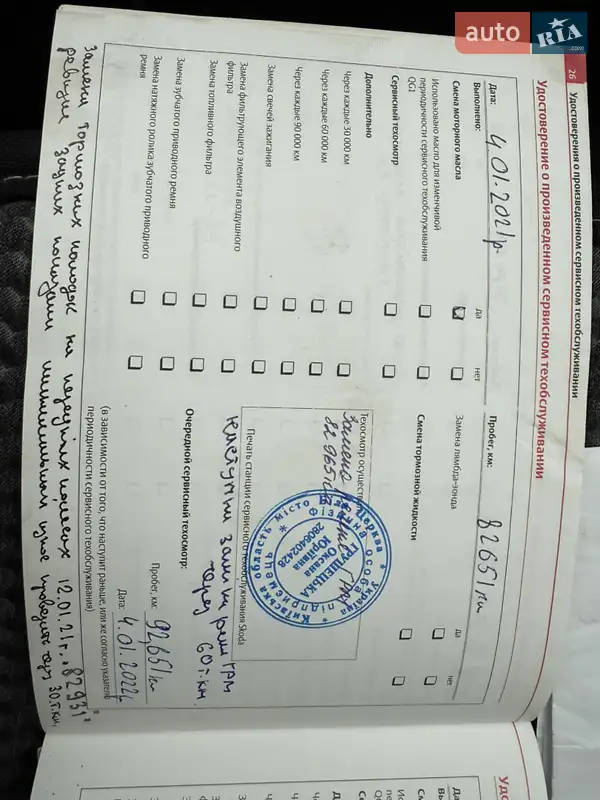 auto RIA.com
26 Удостоверения о произведенном сервисном техобслуживании
Удостоверение о произведенном сервисном техобслуживании
Дата: 4.01.2021р.
Пробег, км: 82651 км
Выполнено:
да нет
да нет
Смена моторного масла
Замена лямбда-зонда
Использовано масло для изменчивой
периодичности сервисного техобслуживания
QG1
Смена тормозной жидкости
Сервисный техосмотр
Дополнительно
Через каждые 30 000 км
Через каждые 60 000 км
Через каждые 90 000 км
Замена свечей зажигания
Замена фильтрующего элемента воздушного
фильтра
Замена топливного фильтра
Замена зубчатого приводного ремня
Замена натяжного ролика зубчатого приводного
ремня
Техосмотр осущест
Замена
82 965
Україна * Київська область місто Біла Церква *
Фізична особа підприємець
ГРУШЕЦЬКА
Оксана
Юріївна
2806402428
Печать станции сервисного техобслуживания Škoda
Наступна заміна ременя ГРМ
через 60 т.км.
Очередной сервисный техосмотр:
Пробег, км: 92651 км
Дата: 4.01.2022
(в зависимости от того, что наступит раньше, или же согласно указателю
периодичности сервисного техобслуживания)
заміна тормозних колодок на передніх колесах 12.01.21г. 82931
ревізія задніх колодок
30 т.км.